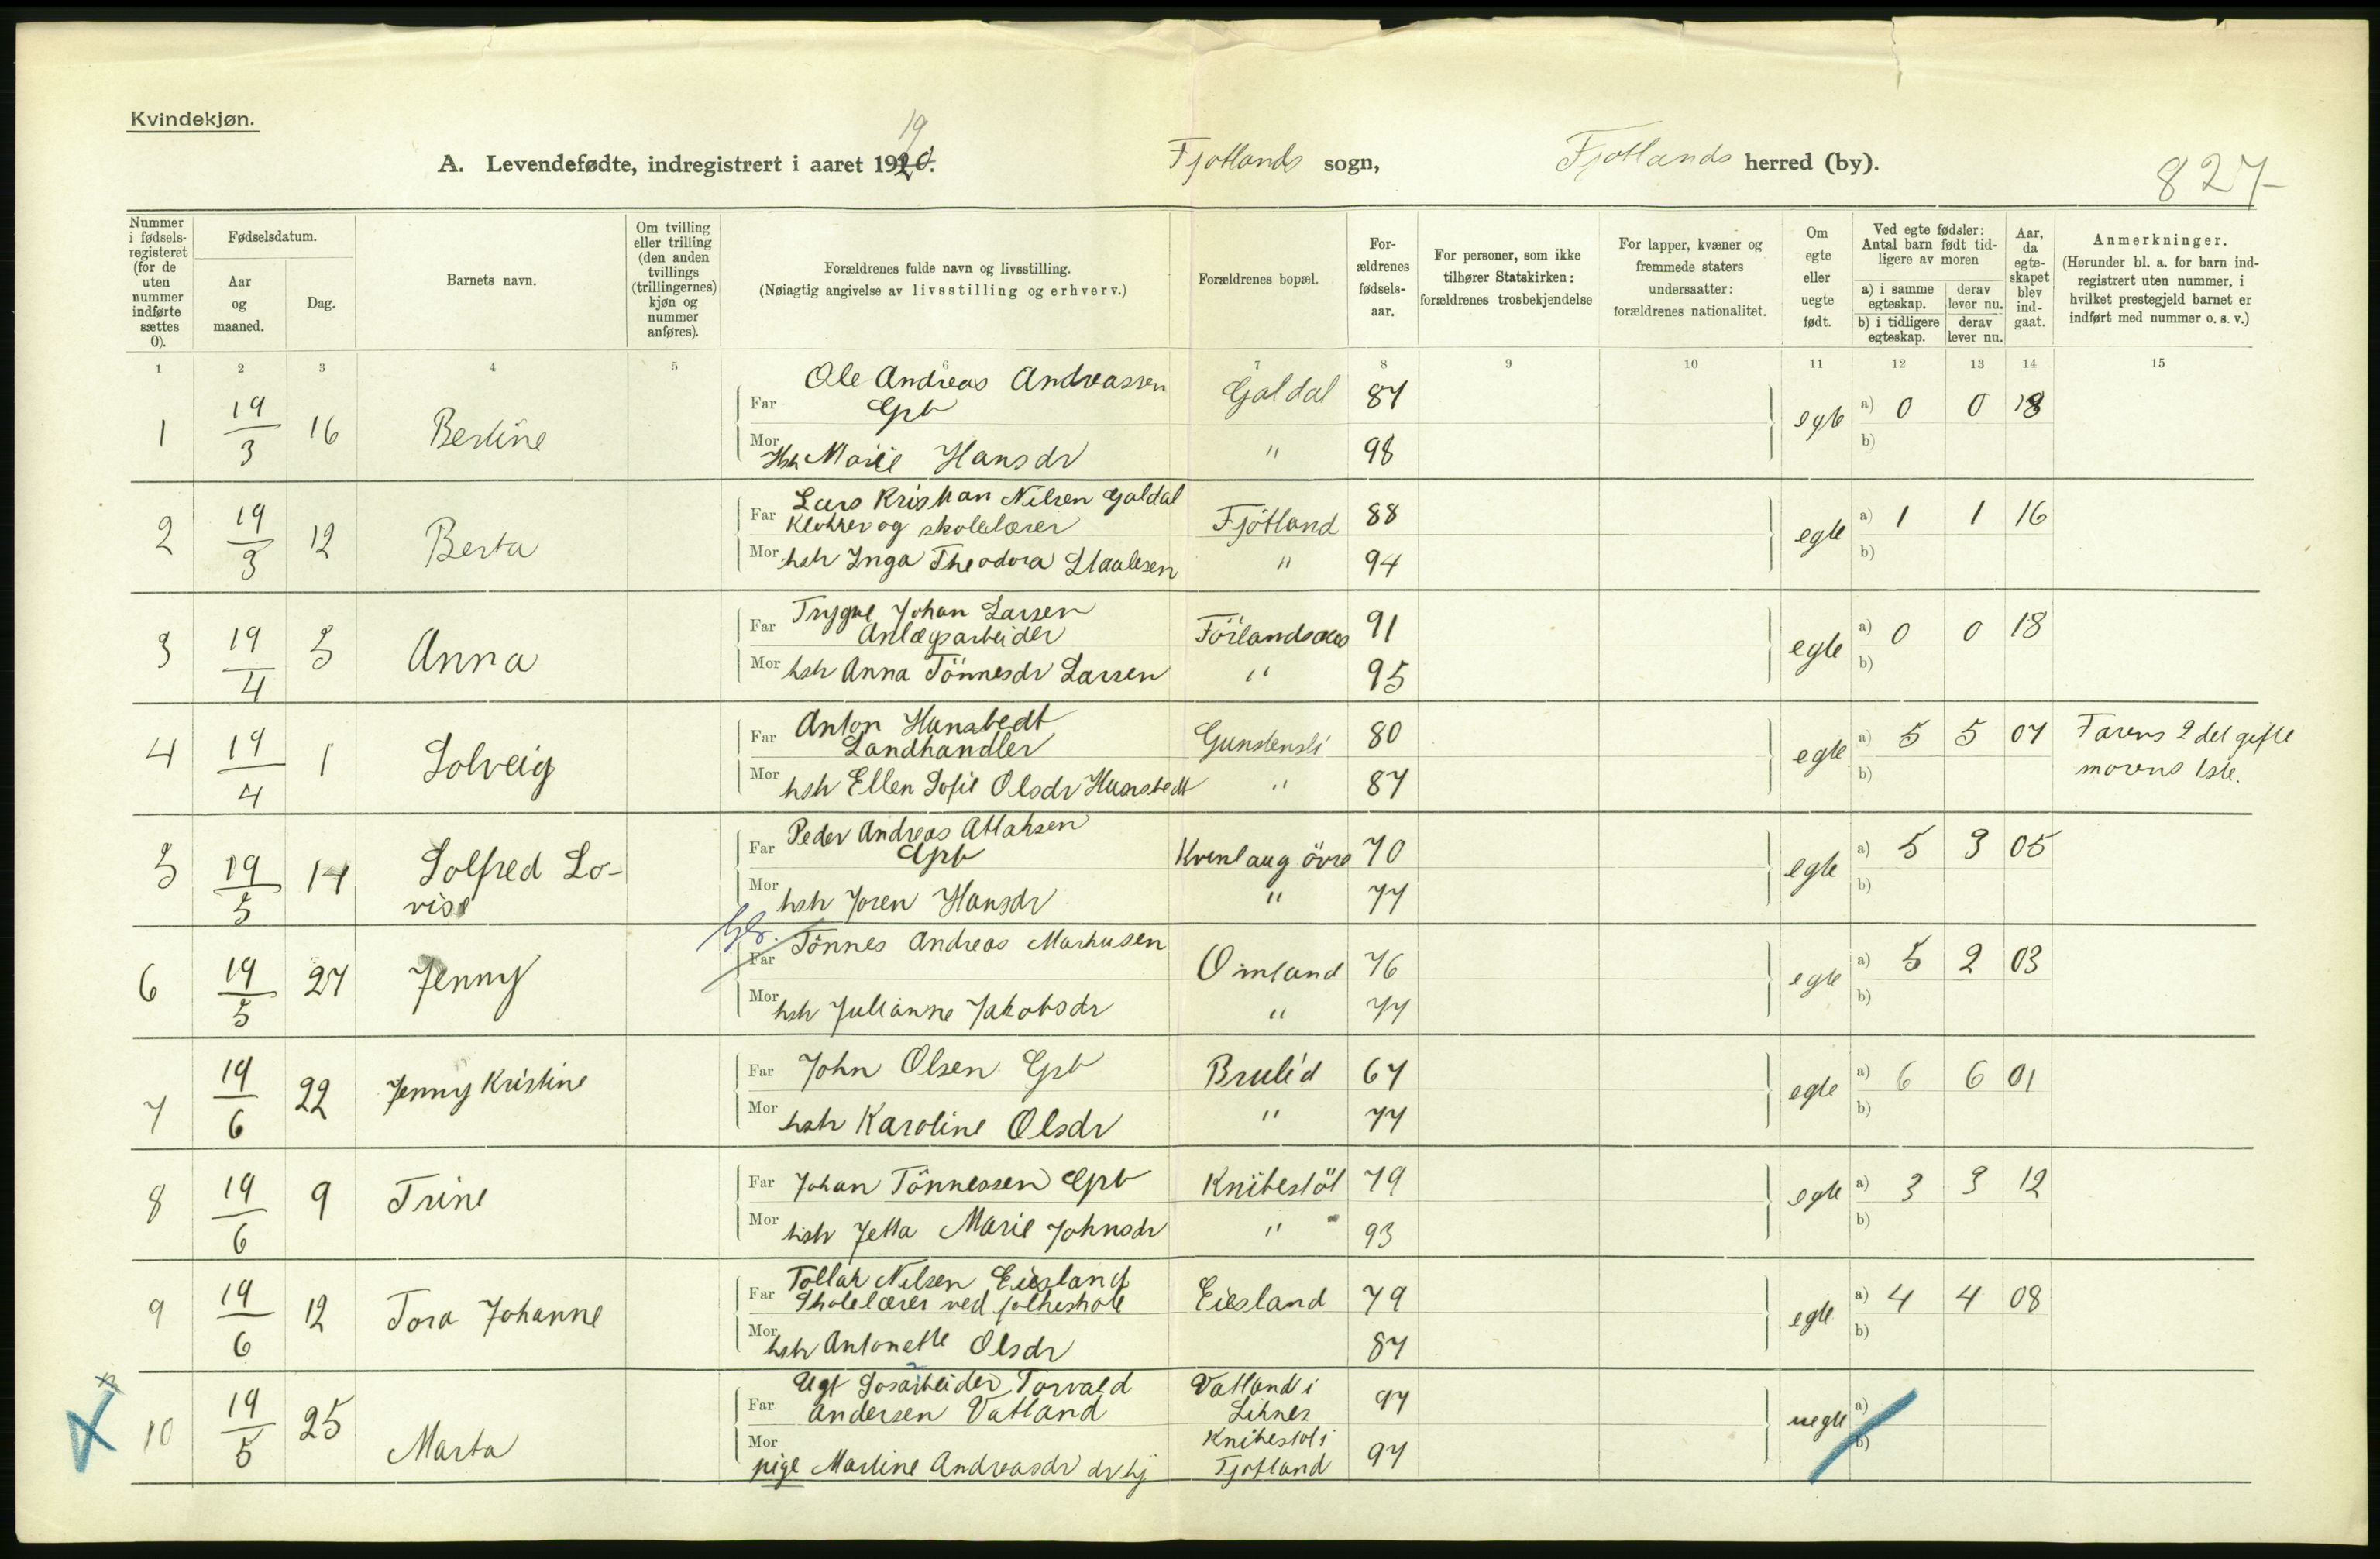 Kvindekjøn.
A. Levendefødte, indregistrert i aaret 1920. 19
Fjotlands sogn, Fjotlands herred (by).
827
Nummer i fødsels-registeret (for de uten nummer indførte sættes 0).
Fødselsdatum.
Aar og maaned.
Dag.
Barnets navn.
Om tvilling eller trilling (den anden tvillings (trillingernes) kjøn og nummer anføres).
Forældrenes fulde navn og livsstilling.
(Nøiagtig angivelse av livsstilling og erhverv.)
Forældrenes bopæl.
For-ældrenes fødsels-aar.
For personer, som ikke tilhører Statskirken: forældrenes trosbekjendelse
For lapper, kvæner og fremmede staters undersaatter: forældrenes nationalitet.
Om egte eller uegte født.
Ved egte fødsler: Antal barn født tid-ligere av moren
a) i samme egteskap. derav lever nu.
b) i tidligere egteskap. derav lever nu.
Aar, da egte-skapet blev ind-gaat.
Anmerkninger.
(Herunder bl. a. for barn ind-registrert uten nummer, i hvilket prestegjeld barnet er indført med nummer o. s. v.)
1 2 3 4 5 6 7 8 9 10 11 12 13 14 15
1 19/3 16 Bertine
Far Ole Andreas Andreassen Gbr Galdal 87 egte a) 0 0 18
Mor Hsh Marie Hansdr " 98 b)
2 19/3 12 Berta
Far Lars Kristian Nilsen Galdal
Klokker og skolelærer Fjotland 88 egte a) 1 1 16
Mor hsh Inga Theodora Staalesen " 94 b)
3 19/4 5 Anna
Far Trygve Johan Larsen
Anlægsarbeider 91 egte a) 0 0 18
Mor hsh Anna Tönnesdr Larsen " 95 b)
4 19/4 1 Solveig
Far Anton Hunsbedt
Landhandler Gunstensli 80 egte a) 5 5 07 Farens 2det gifte
Mor hsh Ellen Sofie Olsdr Hunsbedt " 87 b) morens 1ste.
5 19/5 14 Solfred Lo-
vise
Far Peder Andreas Atlaksen
Gbr Kvenlaug övre 70 egte a) 5 3 05
Mor hsh Joren Hansdr " 77 b)
6 19/5 27 Jenny
Gbr. Far Tönnes Andreas Markusen Omland 76 egte a) 5 2 03
Mor hsh Julianne Jakobsdr " 77 b)
7 19/6 22 Jenny Kristine
Far John Olsen Gbr Brulid 67 egte a) 6 6 01
Mor hsh Karoline Olsdr " 77 b)
8 19/6 9 Trine
Far Johan Tönnessen Gbr Knibestöl 79 egte a) 3 3 12
Mor hsh Jetta Marie Johnsdr " 93 b)
9 19/6 12 Tora Johanne
Far Tollak Nilsen Eiesland
Skolelærer ved folkeskole Eiesland 79 egte a) 4 4 08
Mor hsh Antonette Olsdr 87 b)
10 19/5 25 Marta
Far Ugt Torvald Vatland i
Andersen Vatland 97 uegte a)
Mor Knibestöl i
pige Martine Andreasdr Fjotland 97 b)